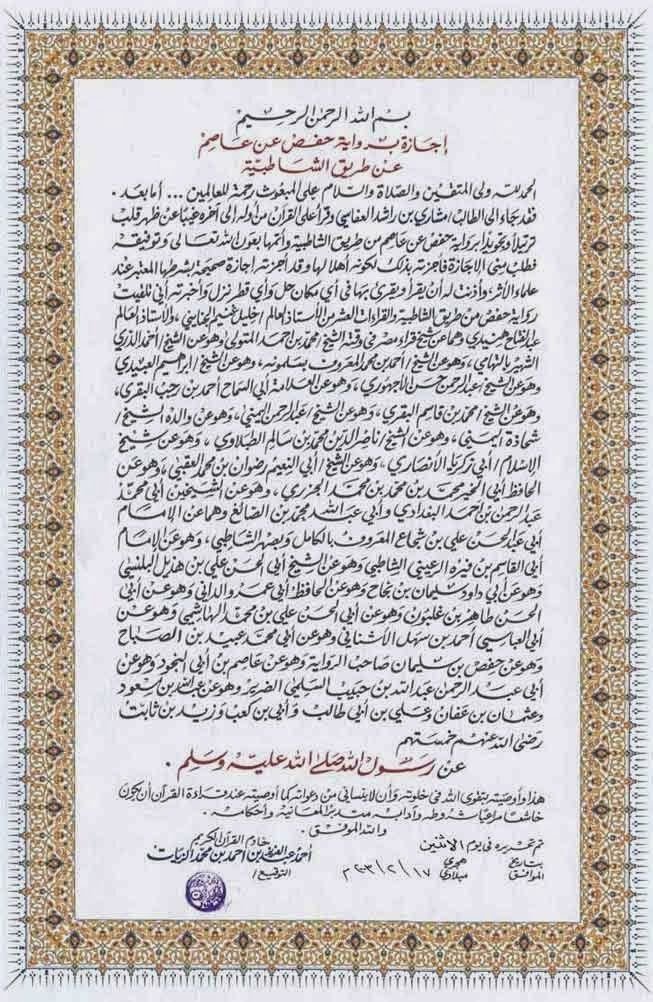 بسم الله الرحمن الرحيم
إجازة برواية حفص عن عاصم
عن طريق الشاطبية
الحمد لله ولي المتقين والصلاة والسلام على المبعوث رحمة للعالمين ... أما بعد .
فقد جاء إلى الطالب/ مشاري بن راشد العفاسي وقرأ على القرآن من أوله إلى آخره غيبا عن ظهر قلب
ترتيلا وتجويدا برواية حفص عن عاصم من طريق الشاطبية وأتمها بعون الله تعالى وتوفيقه
فطلب مني الإجازة فأجزته بذلك لكونه أهلا لها وقد أجزته إجازة صحيحة بشرطها المعتبر عند
علماء الأثر وأذنت له أن يقرأ ويقرئ بها في أي مكان حل وأي قطر نزل وأخبرته أني تلقيت
رواية حفص من طريق الشاطبية والقراءات العشر من الأستاذ العالم / خليل غنيم الجنايني ، والأستاذ العالم
عبد الفتاح هنيدي وهما عن شيخ قراء مصر في وقته الشيخ / محمد بن أحمد المتولي وهو عن الشيخ / أحمد الدري
الشهير بالتهامي ، وهو عن الشيخ / أحمد بن محمد المعروف بسلمونه ، وهو عن الشيخ / إبراهيم العبيدي
وهو عن الشيخ / عبد الرحمن حسن الأجهوري ، وهو عن العلامة أبي السماح أحمد بن رجب البقري ،
وهو عن الشيخ / محمد بن قاسم البقري ، وهو عن الشيخ / عبد الرحمن اليمني ، وهو عن والده الشيخ /
شحاذة اليمني ، وهو عن الشيخ / ناصر الدين محمد بن سالم الطبلاوي ، وهو عن شيخ
الإسلام / أبي زكريا الأنصاري ، وهو عن الشيخ / أبي النعيم رضوان بن محمد العقبي ، وهو عن
الحافظ أبي الخير محمد بن محمد بن محمد الجزري ، وهو عن الشيخين أبي محمد
عبد الرحمن بن أحمد البغدادي وأبي عبد الله محمد بن الصائغ وهما عن الإمام
أبي عبد الحسن علي بن شجاع المعروف بالكامل وبصهر الشاطبي ، وهو عن الإمام
أبي القاسم بن فيره الرعيني الشاطبي وهو عن الشيخ أبي الحسن علي بن هذيل البلنسي
وهو عن أبي داود سليمان بن نجاح وهو عن الحافظ أبي عمرو الداني وهو عن أبي
الحسن طاهر بن غلبون وهو عن أبي الحسن علي بن محمد الهاشمي وهو عن
أبي العباس أحمد بن سهل الأشناني وهو عن أبي محمد عبيد بن الصباح
وهو عن حفص بن سليمان صاحب الرواية وهو عن عاصم بن أبي النجود وهو عن
أبي عبد الرحمن عبد الله بن حبيب السلمي الضرير وهو عن عبد الله بن مسعود
وعثمان بن عفان وعلي بن أبي طالب وأبي بن كعب وزيد بن ثابت
رضي الله عنهم خمستهم
عن رسول الله صلى الله عليه وسلم .
هذا وأوصيته بتقوى الله في خلوته وأن لا ينساني من دعواته كما أوصيته عند قراءة القرآن أن يكون
خاشعا مراعيا شروطه وآدابه متدبرا لمعانيه وأحكامه .
والله الموفق .
تم تحريره في يوم الاثنين
بتاريخ هجري
الموافق ميلادي ٢٠٠٣/٢/١٧ م
خادم القرآن الكريم
أحمد عبد العزيز بن أحمد بن محمد الزيات
التوقيع /